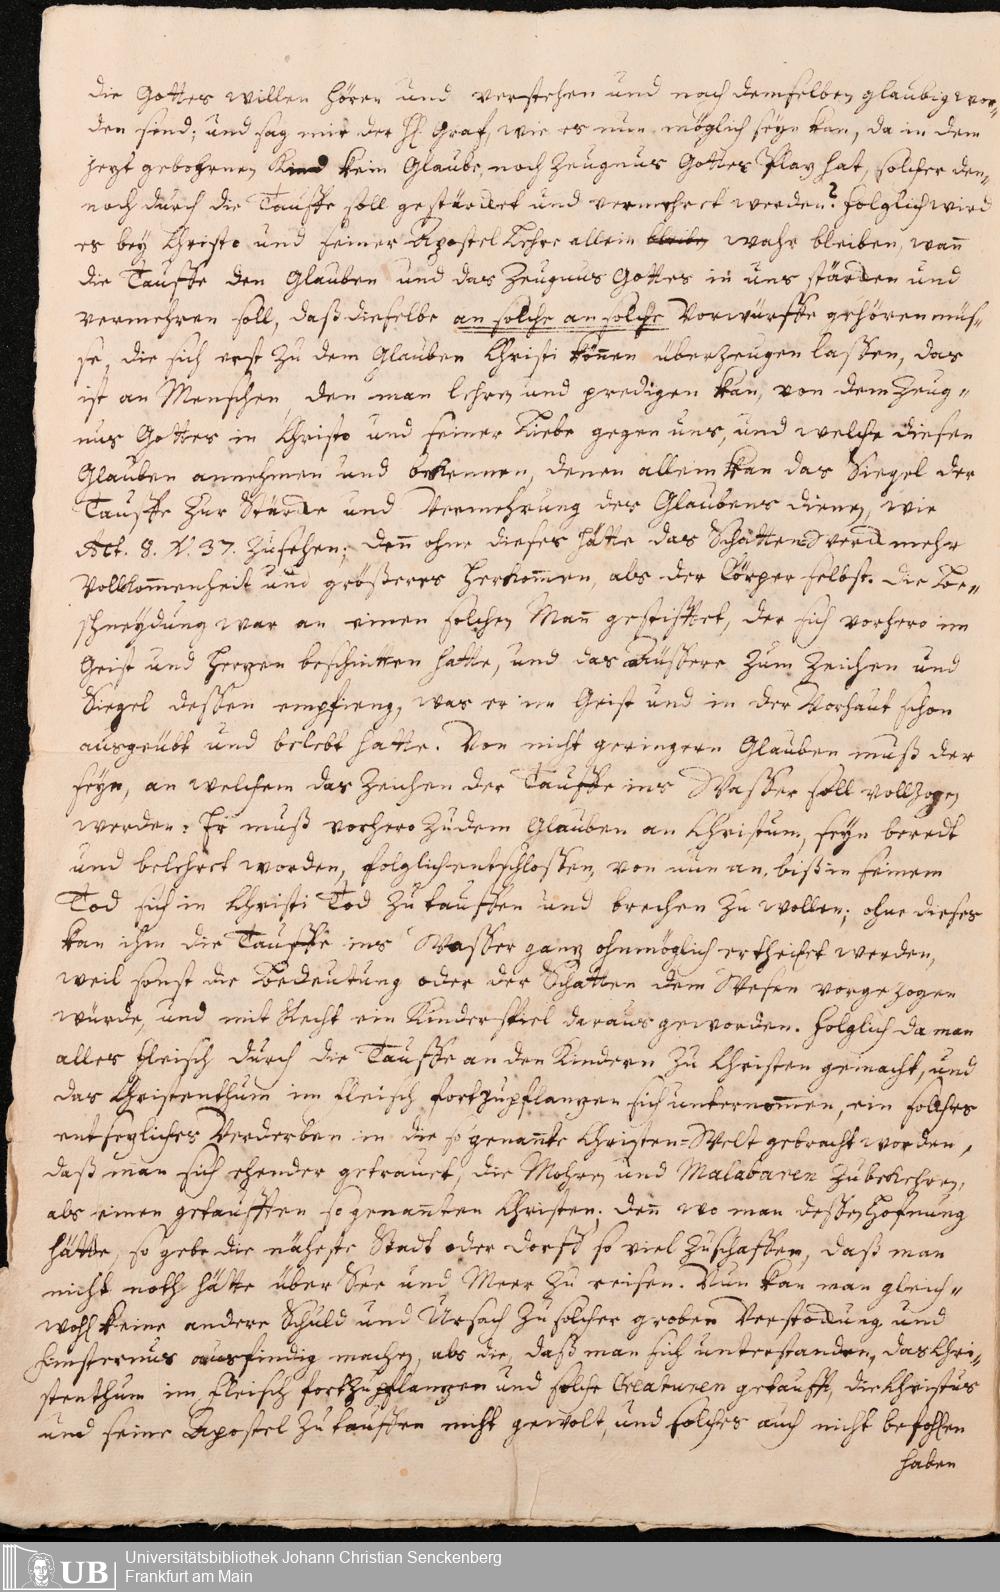 die Gottes willen hören und verstehen und nach demselben glaubig wor-
den sind; und sag mir der H. Graf, wie es nun möglich seyn kan, da in dem
jezt gebohrnen Kind kein Glaube, noch Zeugnus Gottes Plaz hat, solcher den-
noch durch die Tauffe soll gestärcket und vermehret werden? folglich wird
es bey Christo und seiner Apostel Lehre allein bleiben wahr bleiben, wañ
die Tauffe den Glauben und das Zeugnus Gottes in uns stärcken und
vermehren soll, daß dieselbe an solche an solche Vorwürffe gehören müs-
se, die sich erst zu dem Glauben Christi köñen überzeugen lassen, das
ist an Menschen, den man lehren und predigen kan, von dem Zeug-
nus Gottes in Christo und seiner Liebe gegen uns, und welche diesen
Glauben annehmen und erkennen, denen allein kan das Siegel der
Tauffe zur Stärcke und Vermehrung des Glaubens dienen, wie
Act. 8. V. 37. zusehen; deñ ohne dieses hätte das Schattenwerck mehr
Vollkom̃enheit und größeres Herkom̃en, als der Cörper selbst. die Be-
schneydung war an einen solchen Mañ gestifftet, der sich vorhero im
Geist und Herzen beschnitten hatte, und das äussere zum Zeichen und
Siegel dessen empfieng, was er im Geist und in der Vorhaut schon
ausgeübt und belebt hatte. Von nicht geringern Glauben muß der
seyn, an welchem das Zeichen der Tauffe ins Wasser soll vollzogen
werden: Er muß vorhero zu dem Glauben an Christum, seyn beredt
und belehret worden, folglich entschlossen, von nun an, biß in seinem
Tod sich in Christi Tod zu tauffen und brechen zu wollen; ohne dieses
kan ihm die Tauffe ins Wasser ganz ohnmöglich ertheilet werden,
weil sonst die Bedeutung oder der Schatten dem Wesen vorgezogen
würde, und mit Recht ein Kinderspiel daraus geworden. folglich da man
alles Fleisch durch die Tauffe an den Kindern zu Christen gemacht, und
das Christenthum im Fleisch fortzupflanzen sich unternom̃en, ein solches
entsezliches Verderben in die so genañte Christen-Welt gebracht worden,
daß man sich ehender getrauet, die Mohren und Malabaren zubekehren,
als einen getaufften so genañten Christen; deñ wo man dessen Hofnung
hätte, so gebe die näheste Stadt oder dorff so viel zuschaffen, daß man
nicht noth hätte über See und Meer zu reisen. Nun kan man gleich-
wohl keine andere Schuld und Ursach zu solcher groben Verstockung und
Finsternus ausfindig machen, als die, daß man sich unterstanden, das Chri-
stenthum im Fleisch fortzupflanzen und solche Creaturen getaufft, die Christus
und seine Apostel zu tauffen nicht gewolt, und solches auch nicht befohlen
haben
UB
Universitätsbibliothek Johann Christian Senckenberg
Frankfurt am Main